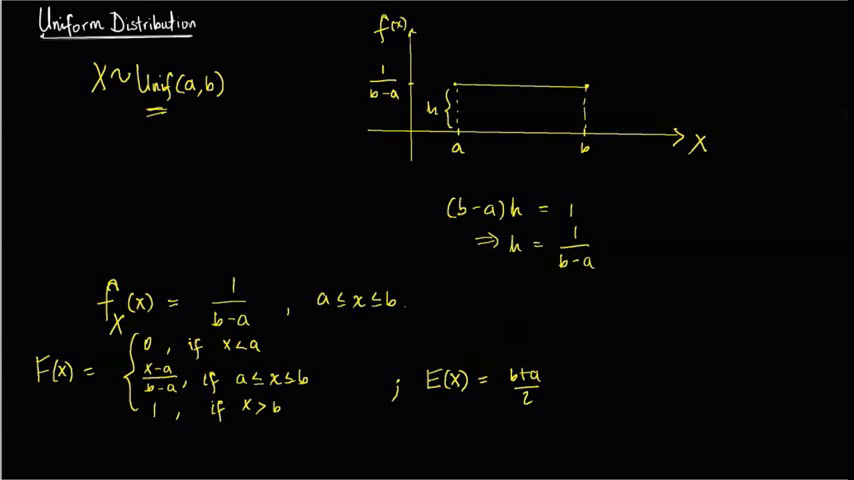 Uniform Distribution
X ~ Unif(a,b)
f(x)
1/(b-a)
h {
a
b
X
(b-a)h = 1
⇒ h = 1/(b-a)
f_X(x) = 1/(b-a) , a ≤ x ≤ b.
F(x) = { 0 , if x < a
(x-a)/(b-a), if a ≤ x ≤ b
1 , if x > b
; E(X) = (b+a)/2